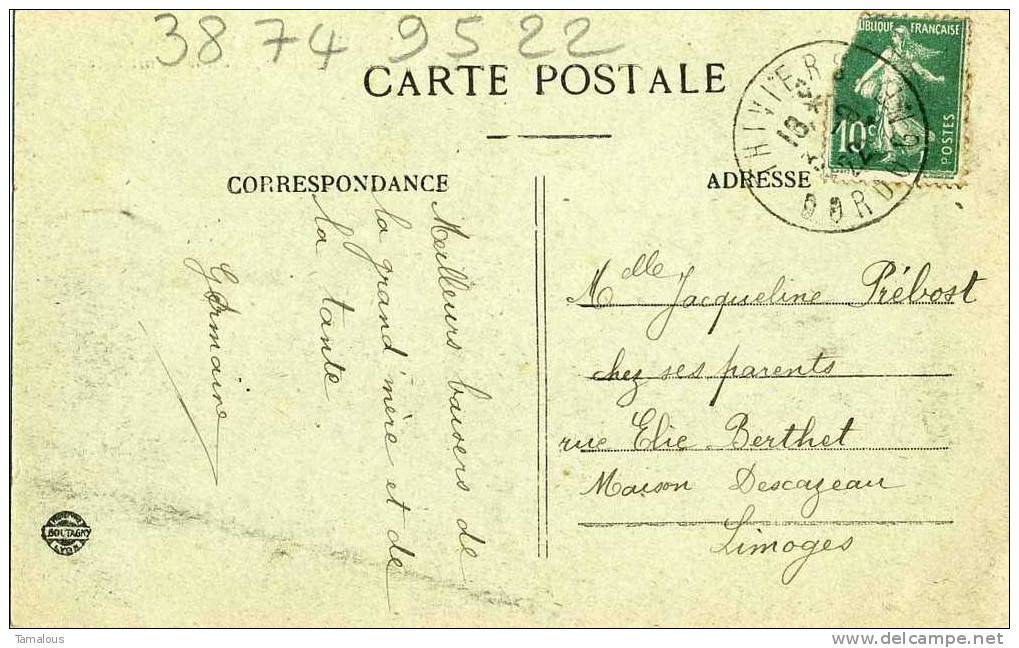 38 74 95 22
CARTE POSTALE
CORRESPONDANCE
ADRESSE
RÉPUBLIQUE FRANÇAISE
10c
POSTES
THIVIERS
18
22
DORDOGNE
Meilleurs baisers de
la grand'mère et de
la tante
Germaine
Mlle Jacqueline Prébost
chez ses parents
rue Elie Berthet
Maison Descazeau
Limoges
BOUTAGNY
LYON
Tamalous
delcampe.net